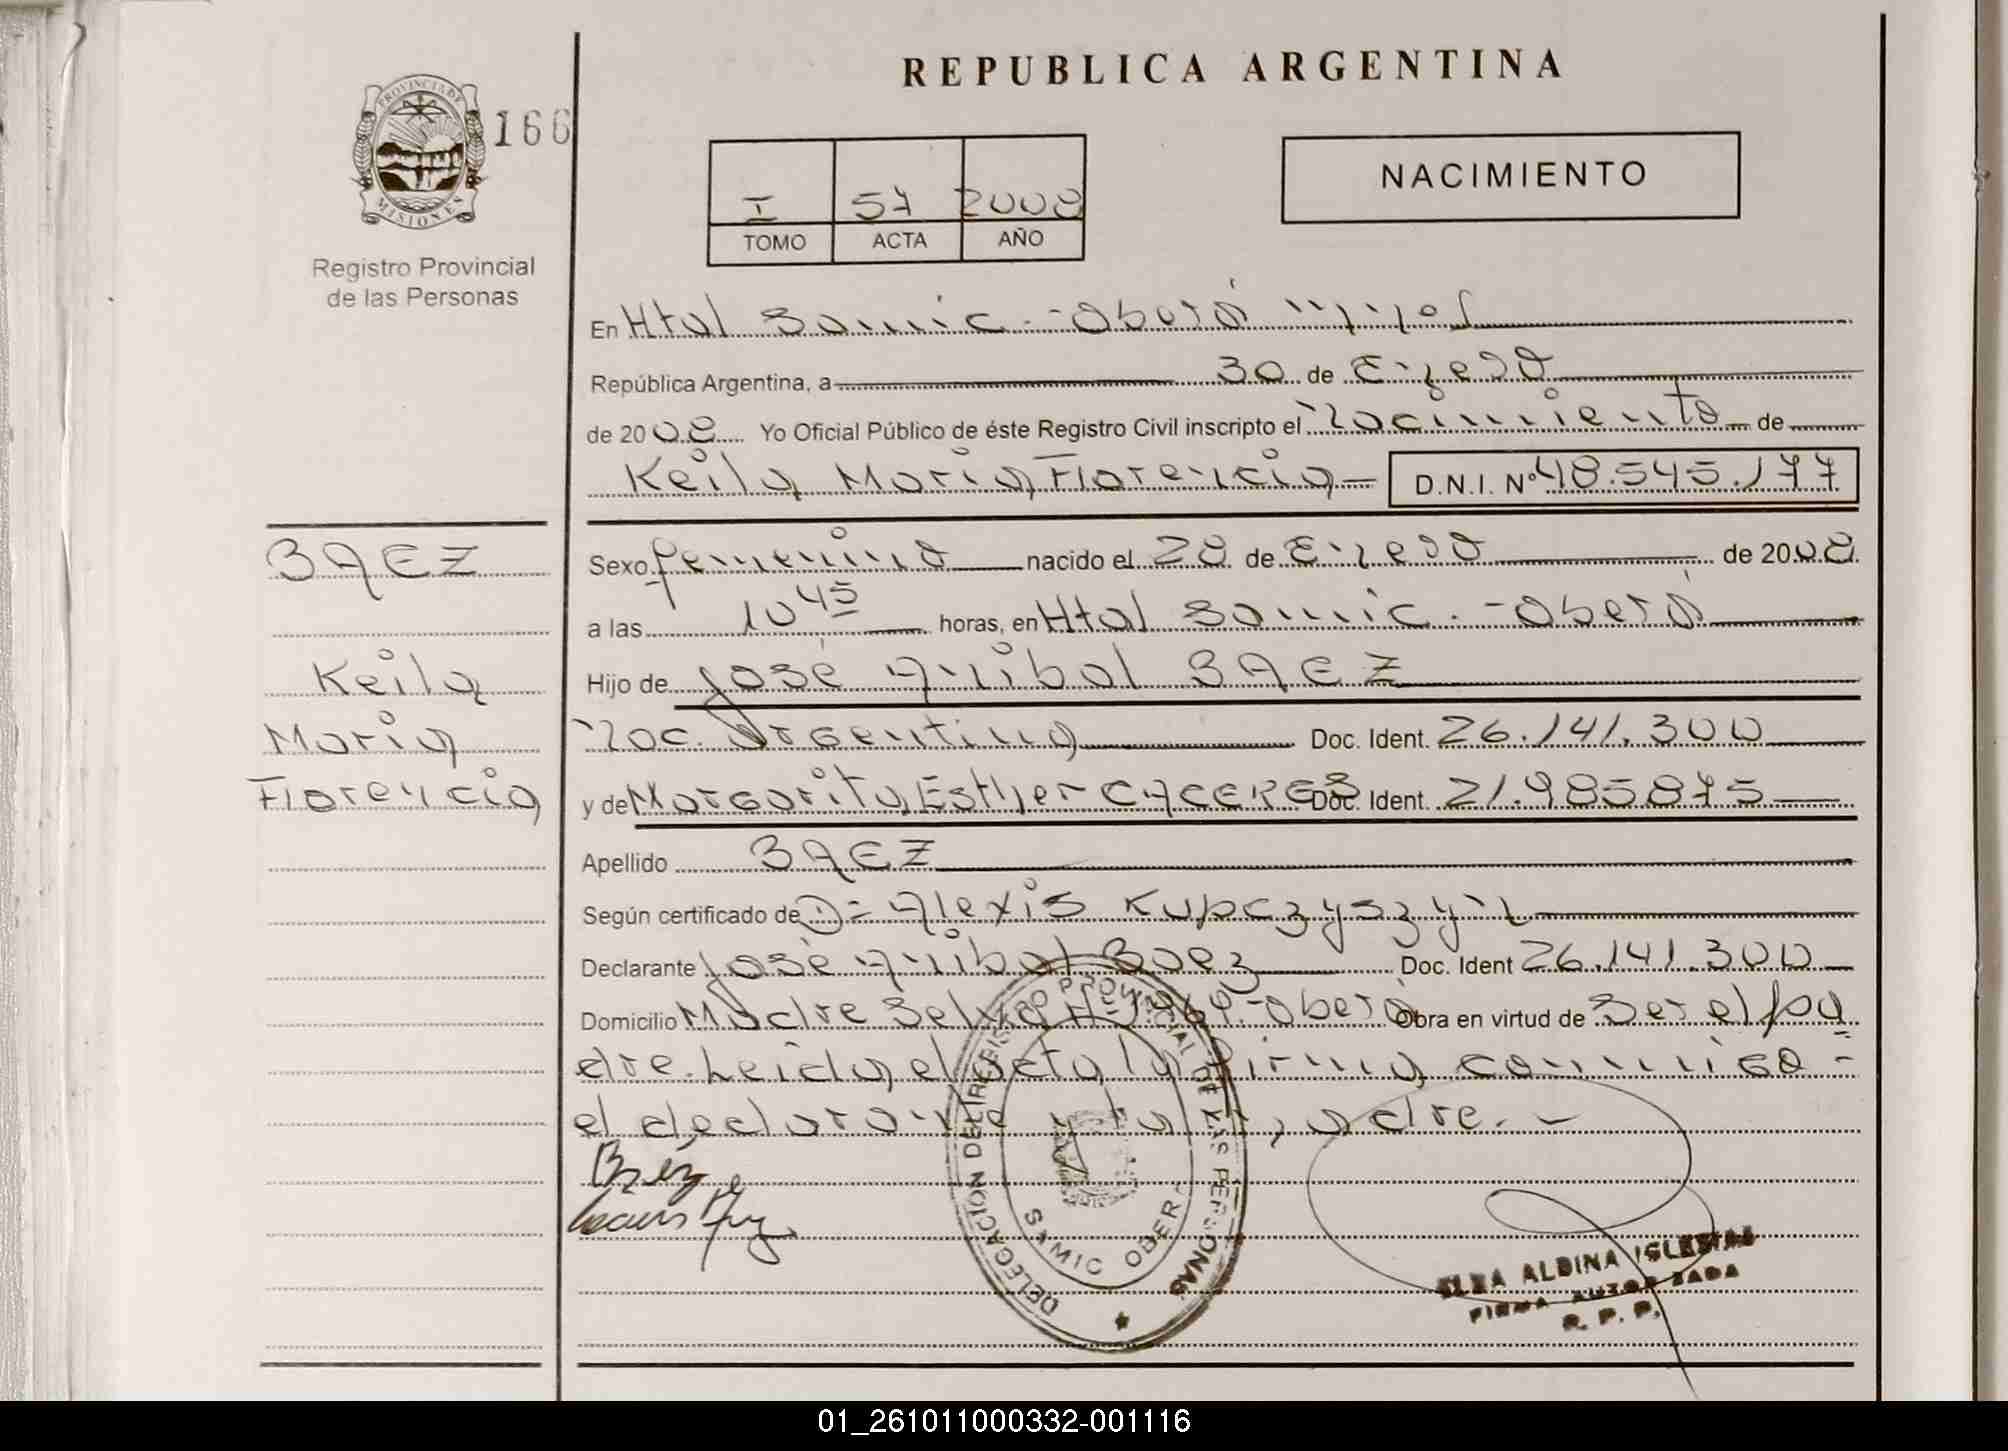 REPUBLICA ARGENTINA
PROVINCIA DE
MISIONES
166
Registro Provincial
de las Personas
I 57 2008
TOMO ACTA AÑO
NACIMIENTO
En Htal Samic.-Oberá Mnes
República Argentina, a 30 de Enero
de 2008 Yo Oficial Público de éste Registro Civil inscripto el Nacimiento de
Keila Maria Florencia D.N.I. Nº 48.545.177
BAEZ
Keila
Maria
Florencia
Sexo femenino nacido el 28 de Enero de 2008
a las 10 45 horas, en Htal Samic.-Oberá
Hijo de José Anibal BAEZ
Nac. Argentina Doc. Ident. 26.141.300
y de Margarita Esther CACERES Doc. Ident. 21.985875
Apellido BAEZ
Según certificado de D= Alexis Kupczyszyn
Declarante José Anibal Baez Doc. Ident 26.141.300
Domicilio Madre Selva Oberá Obra en virtud de Ser el pa
dre. Leida el acta la firma conmigo
el declarante y la madre.-
Baez
DELEGACION DEL REGISTRO PROVINCIAL DE LAS PERSONAS
SAMIC OBERA
ELSA ALDINA IGLESIAS
FIRMA AUTORIZADA
R. P. P.
01_261011000332-001116